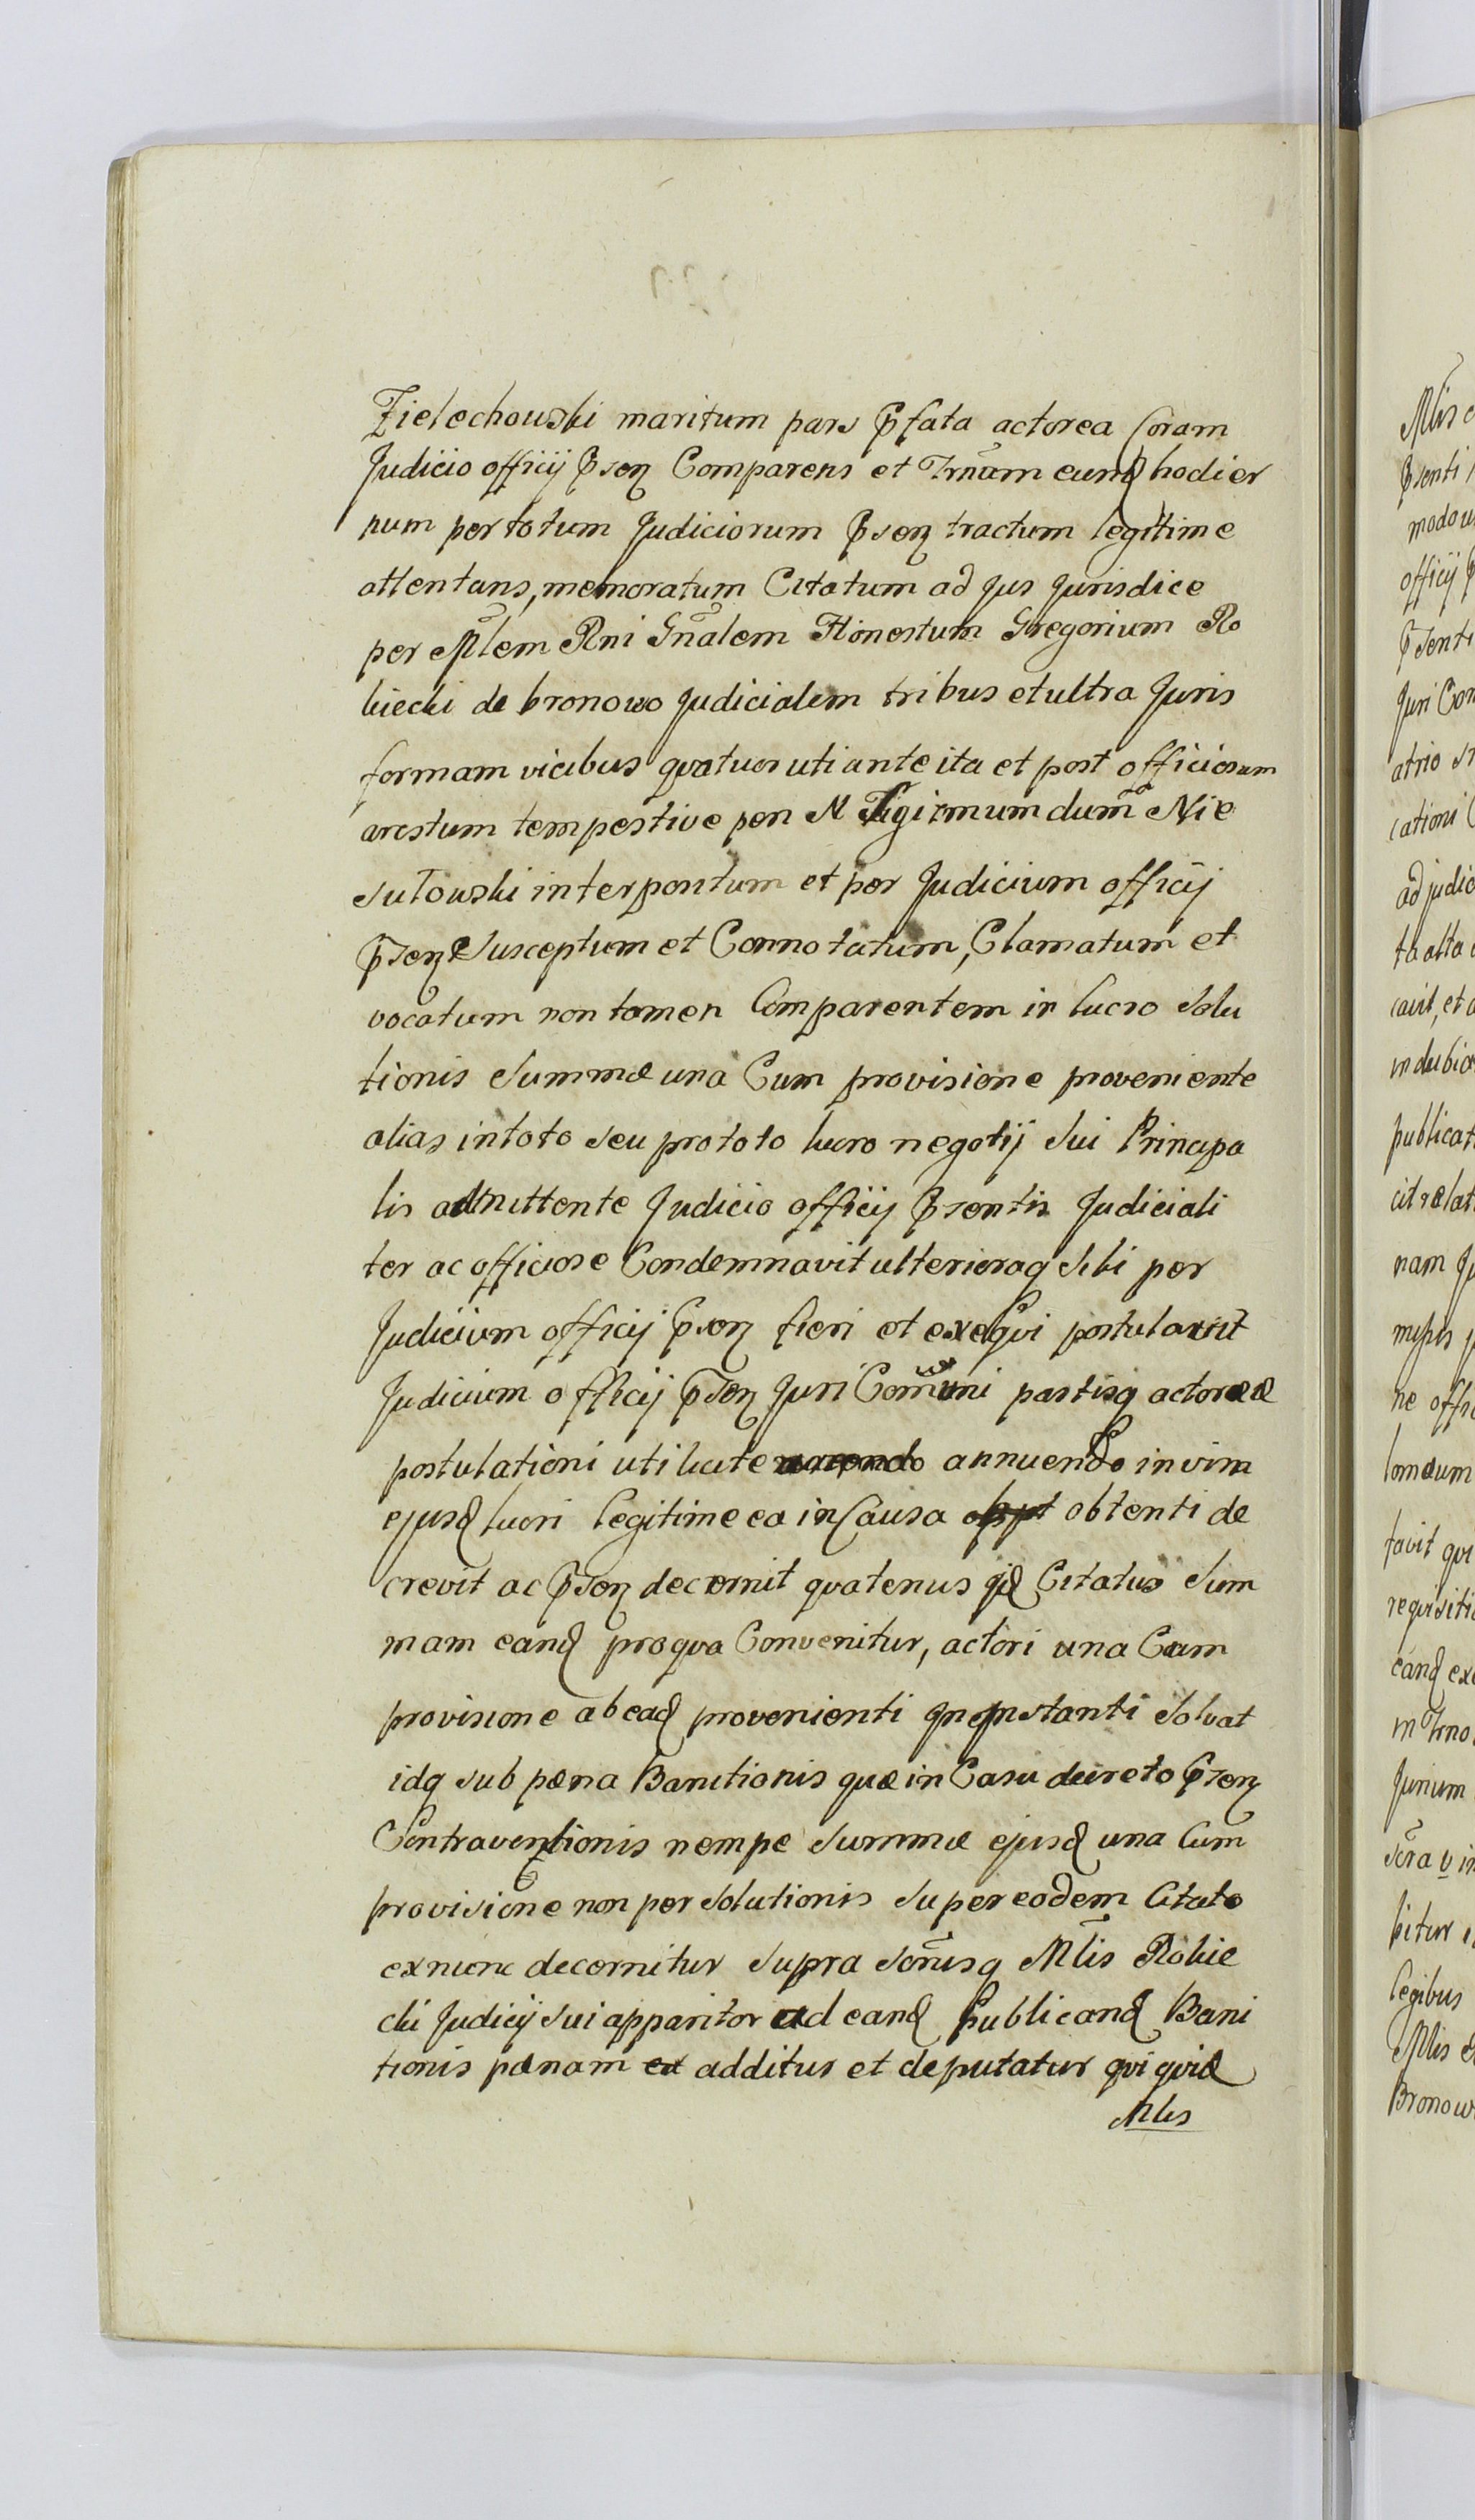 Zielechowski maritum pars p̄fata actorea Coram
Judicio officij p̄sen Comparens et Trnūm eund hodier
num per totum Judiciorum p̄sen tractum legitime
attentans, memoratum Citatum ad Jus Jurisdice
per Mlem Rni Gn̄alem Honestum Gregorium Ro
kiecki de bronowo Judicialem tribus et ultra Juris
formam vicibus quatuor uti ante ita et post officiosum
arestum tempestive per N Zigismumdum Nie
sułowski interpositum et per Judicium officij
p̄sen Susceptum et Connotatum, Clamatum et
vocatum non tamen Comparentem in lucro Solu
tionis Summæ una Cum provisione proveniente
alias in toto seu pro toto lucro negotij Sui Principa
lis admittente Judicio officij p̄sentis Judiciali
ter ac officiose Condemnavit ulterioraq Sibi per
Judicium officij p̄sen fieri et exequi postulavit
Judicium officij p̄sen Juri Com̄uni partisq actoreæ
postulationi uti licite annuendo in vim
ejusd lucri legitime ea in Causa obtenti de
crevit ac p̄sen decernit quatenus id Citatus Sum
mam eand pro qva Convenitur, actori una Cum
provisione ab ead provenienti in instanti Solvat
idq sub pæna Banitionis quæ in Casu decreto p̄sen
Contraventionis nempe Summæ ejusd una Cum
provisione non per Solutionis Super eodem Citato
ex nunc decernitur Supra Scriptusq Mlis Rokie
cki Judicij Sui apparitor ad eand publicand Bani
tionis pænam additur et deputatur qvi qvid
Mlis
22
Mlis
p̄senti
modo
officij
p̄senti
Juri Com
atrio
cationi
ad judic
ta alta
cavit, et
indubia
publicat
cit relat
nam
ne offi
favit qvi
requisiti
eand ex
in Trno
Junium
bitur
legibus
Mlis
Bronow